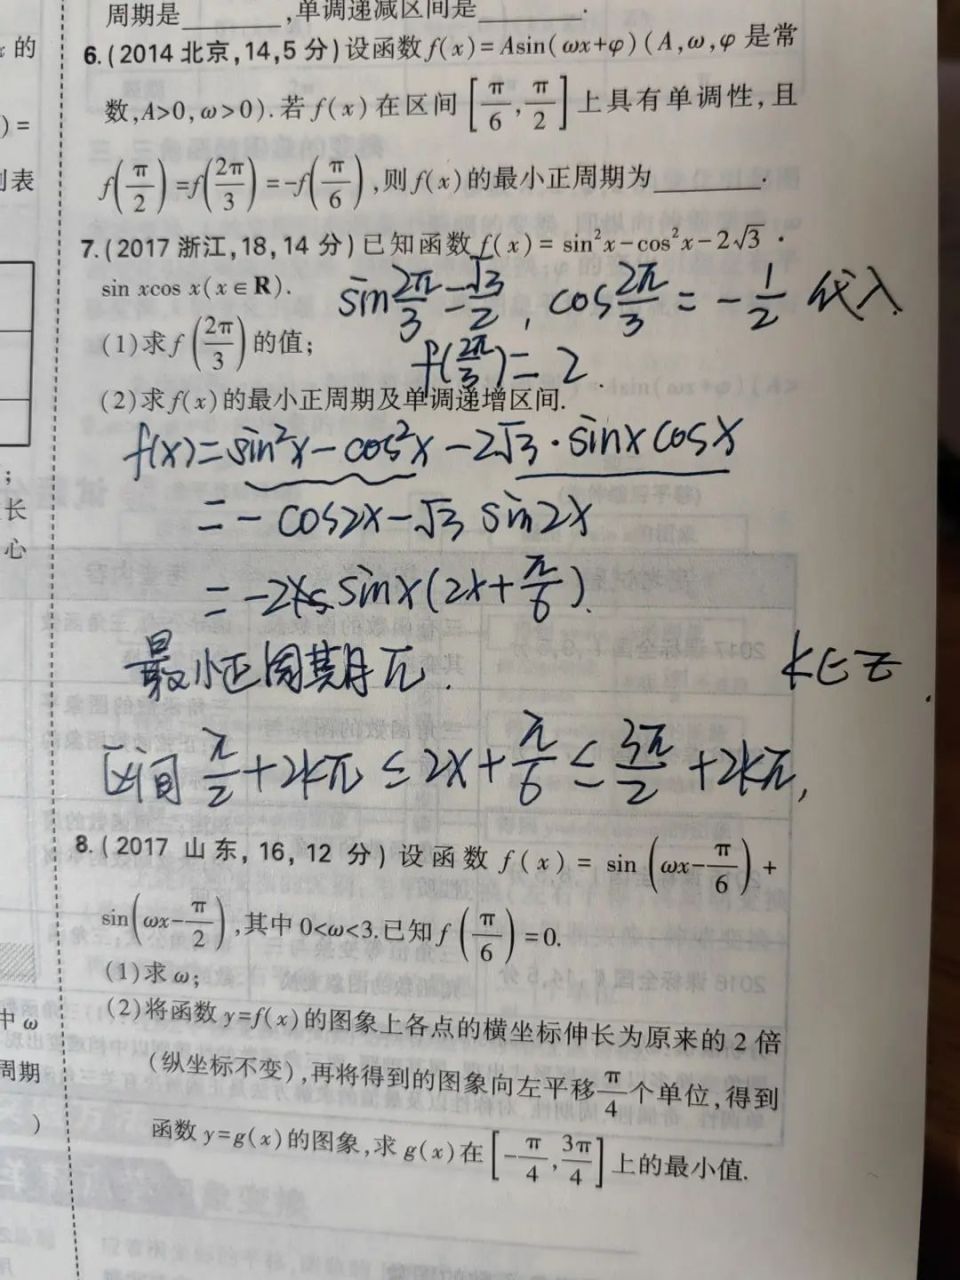 周期是______,单调递减区间是______.
6.(2014北京,14,5分)设函数f(x)=Asin(ωx+φ)(A,ω,φ是常
数,A>0,ω>0).若f(x)在区间[π/6,π/2]上具有单调性,且
f(π/2)=f(2π/3)=-f(π/6),则f(x)的最小正周期为______.
7.(2017浙江,18,14分)已知函数f(x)=sin²x-cos²x-2√3·
sin xcos x(x∈R).
sin2π/3=√3/2,cos2π/3=-1/2 代入
(1)求f(2π/3)的值;
f(2π/3)=2.
(2)求f(x)的最小正周期及单调递增区间.
f(x)=sin²x-cos²x-2√3·sinxcosx
=-cos2x-√3 sin2x
=-2 sinx(2x+π/6).
最小正周期π.
k∈Z
区间π/2+2kπ≤2x+π/6≤3π/2+2kπ,
8.(2017山东,16,12分)设函数f(x)=sin(ωx-π/6)+
sin(ωx-π/2),其中0<ω<3.已知f(π/6)=0.
(1)求ω;
(2)将函数y=f(x)的图象上各点的横坐标伸长为原来的2倍
(纵坐标不变),再将得到的图象向左平移π/4个单位,得到
函数y=g(x)的图象,求g(x)在[-π/4,3π/4]上的最小值.
的
)=
列表
;
长
心
中ω
周期
)